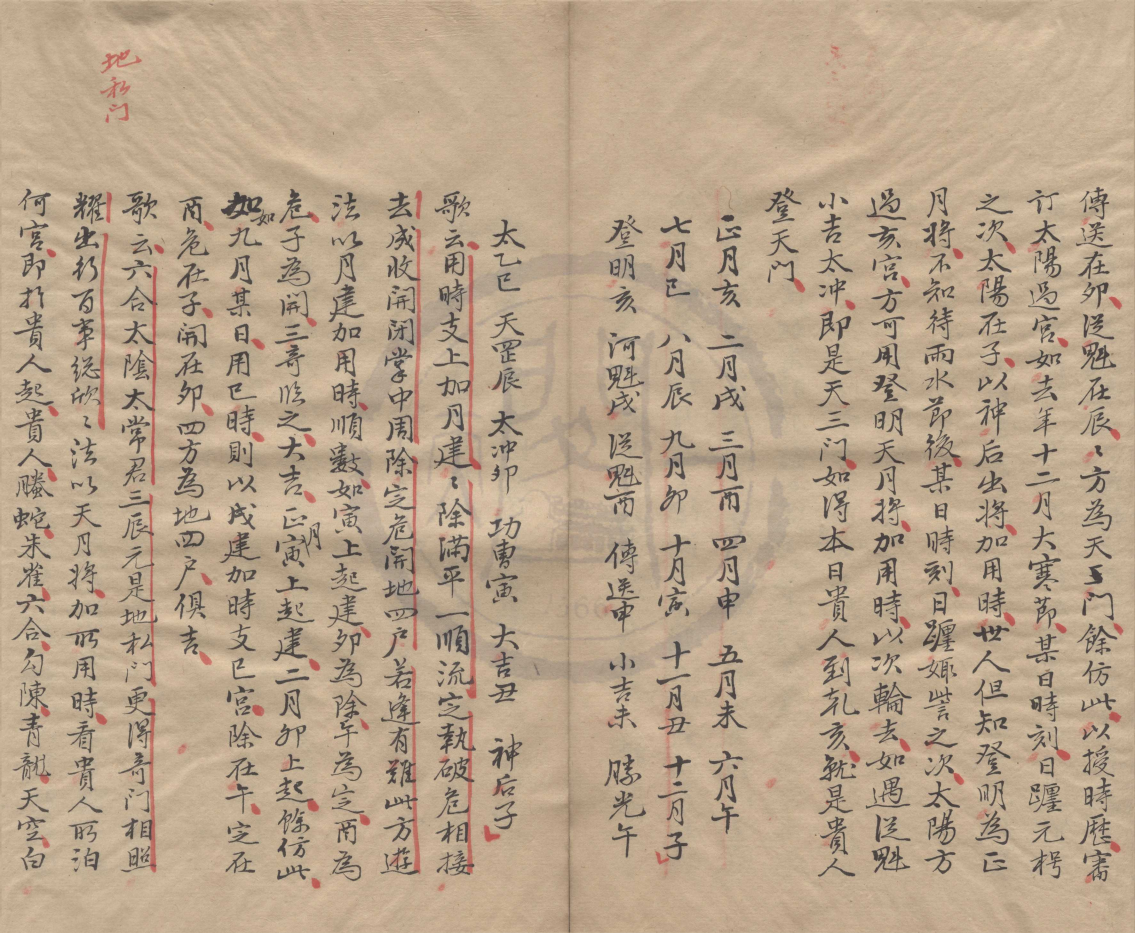 傳送在卯從魁在辰〻方為天三門餘仿此以授時歷審
訂太陽過宮如去年十二月大寒節某日時刻日躔元枵
之次太陽在子以神后出將加用時世人但知登明為正
月將不知待雨水節後某日時刻日躔娵訾之次太陽方
過亥宮方可用登明天月將加用時以次輪去如遇從魁
小吉太冲即是天三門如得本日貴人到乾亥就是貴人
登天門
正月亥 二月戌 三月酉 四月申 五月未 六月午
七月巳 八月辰 九月卯 十月寅 十一月丑 十二月子
登明亥 河魁戌 從魁酉 傳送申 小吉未 勝光午
太乙巳 天罡辰 太冲卯 功曹寅 大吉丑 神后子
歌云用時支上加月建〻除滿平一順流定執破危相接
去成收開閉掌中周除定危開地四户若逢有難此方遊
法以月建加用時順數如寅上起建卯為除午為定酉為
危子為開三奇臨之大吉正月寅上起建二月卯上起餘仿此
如九月某日用巳時則以戌建加時支巳宮除在午定在
酉危在子開在卯四方為地四户俱吉
地私门
歌云六合太陰太常君三辰元是地私門更得奇门相照
耀出行百事総欣〻法以天月將加所用時看貴人所泊
何宮即於貴人起貴人螣蛇朱雀六合勾陳青龍天空白